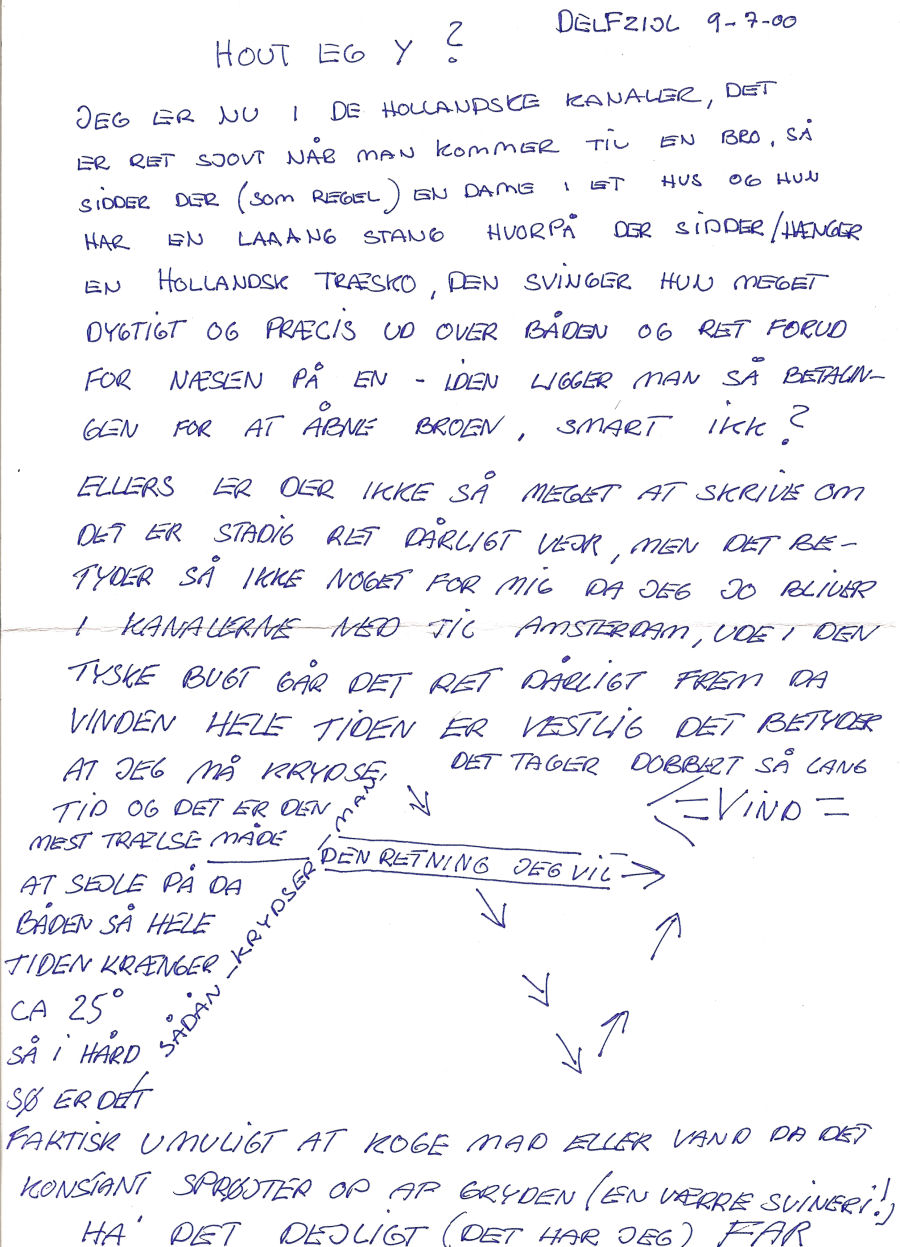 DELFZIJL 9-7-00
HOUT EG Y ?
JEG ER NU I DE HOLLANDSKE KANALER, DET
ER RET SJOVT NÅR MAN KOMMER TIL EN BRO, SÅ
SIDDER DER (SOM REGEL) EN DAME I ET HUS OG HUN
HAR EN LAAANG STANG HVORPÅ DER SIDDER/HÆNGER
EN HOLLANDSK TRÆSKO, DEN SVINGER HUN MEGET
DYGTIGT OG PRÆCIS UD OVER BÅDEN OG RET FORUD
FOR NÆSEN PÅ EN - IDEN LIGGER MAN SÅ BETALIN-
GEN FOR AT ÅBNE BROEN, SMART IKK?
ELLERS ER DER IKKE SÅ MEGET AT SKRIVE OM
DET ER STADIG RET DÅRLIGT VEJR, MEN DET BE-
TYDER SÅ IKKE NOGET FOR MIG DA JEG JO BLIVER
I KANALERNE NED TIL AMSTERDAM, UDE I DEN
TYSKE BUGT GÅR DET RET DÅRLIGT FREM DA
VINDEN HELE TIDEN ER VESTLIG DET BETYDER
AT JEG MÅ KRYDSE, DET TAGER DOBBELT SÅ LANG
TID OG DET ER DEN
MEST TRÆLSE MÅDE
AT SEJLE PÅ DA
BÅDEN SÅ HELE
TIDEN KRÆNGER
CA 25°
SÅ I HÅRD
SØ ER DET
FAKTISK UMULIGT AT KOGE MAD ELLER VAND DA DET
KONSTANT SPRØJTER OP AF GRYDEN (EN VÆRRE SVINERI!)
HA' DET DEJLIGT (DET HAR JEG) FAR
SÅDAN KRYDSER MAN
DEN RETNING JEG VIL
=VIND=